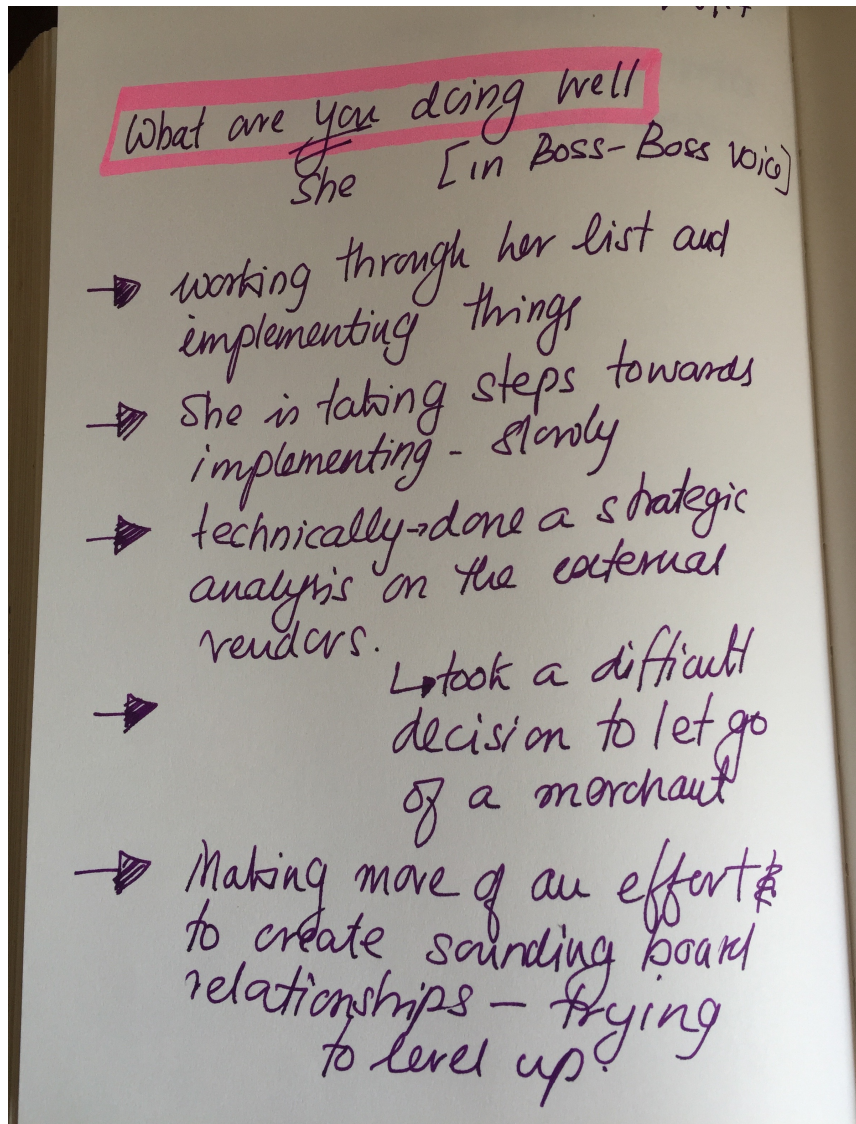 What are you doing well
She [in Boss-Boss voice]
→ working through her list and
implementing things
→ She is taking steps towards
implementing - slowly
→ technically→done a strategic
analysis on the external
vendors.
↳took a difficult
→ decision to let go
of a merchant
→ Making more of an effort
to create sounding board
relationships - trying
to level up.